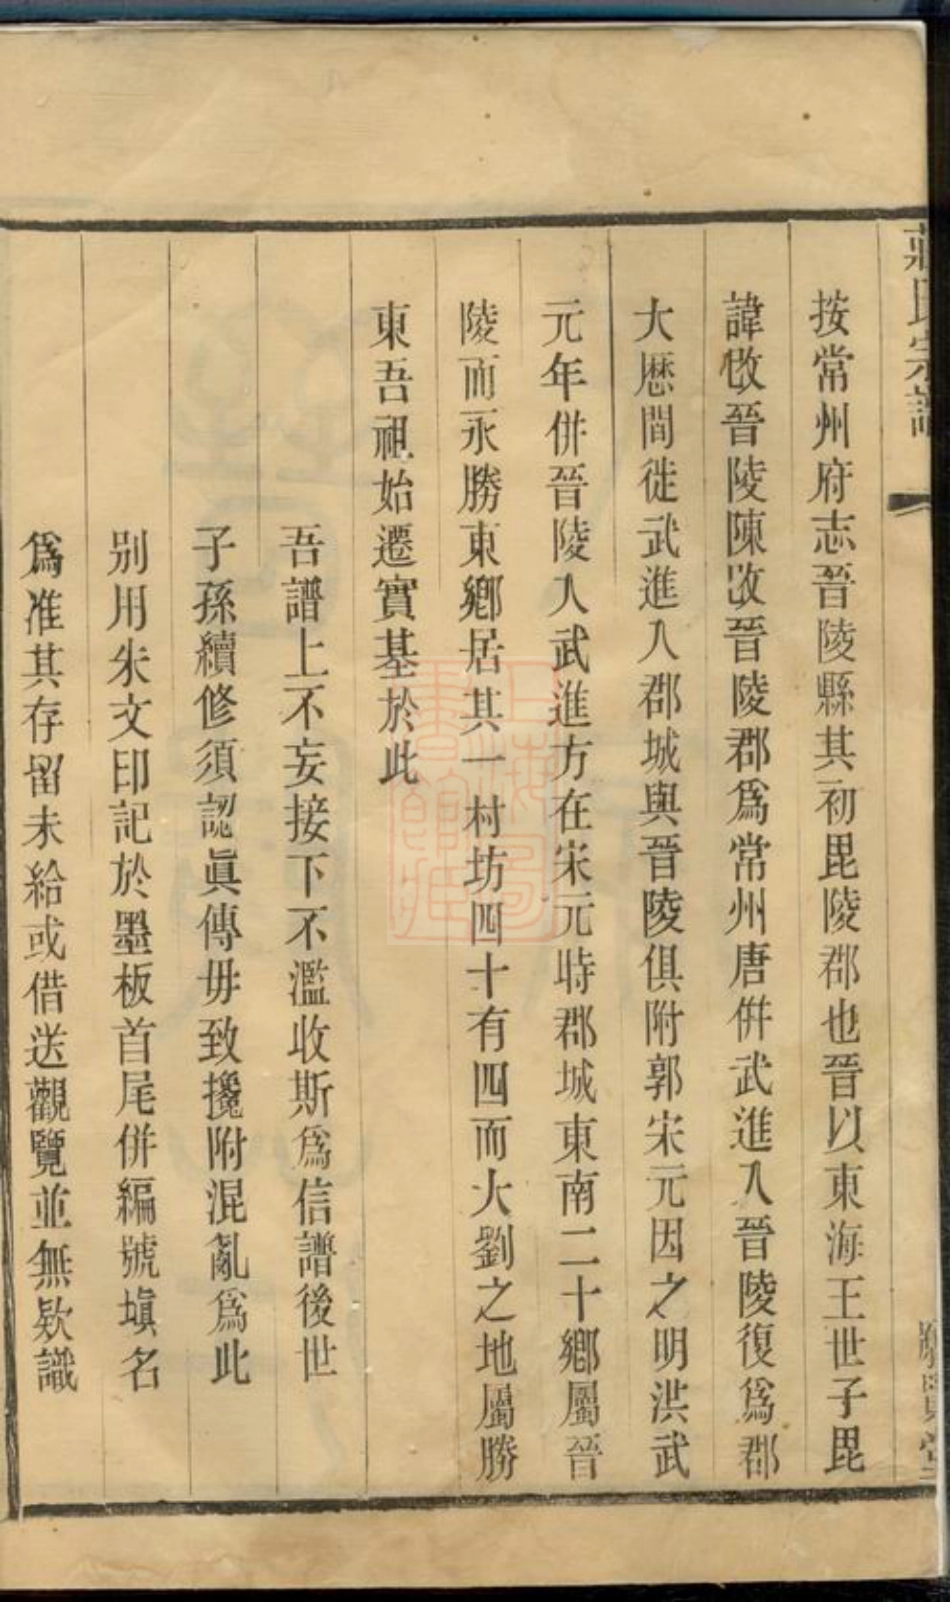 莊氏宗譜
按常州府志晉陵縣其初毘陵郡也晉以東海王世子毘
諱改晉陵陳改晉陵郡爲常州唐併武進入晉陵復爲郡
大厯間徙武進入郡城與晉陵俱附郭宋元因之明洪武
元年併晉陵入武進方在宋元時郡城東南二十鄉屬晉
陵而永勝東鄉居其一村坊四十有四而大劉之地屬勝
東吾祖始遷實基於此
吾譜上不妄接下不濫收斯爲信譜後世
子孫續修須認眞傳毋致攙附混亂爲此
别用朱文印記於墨板首尾併編號塡名
爲准其存留未給或借送觀覽並無欵識